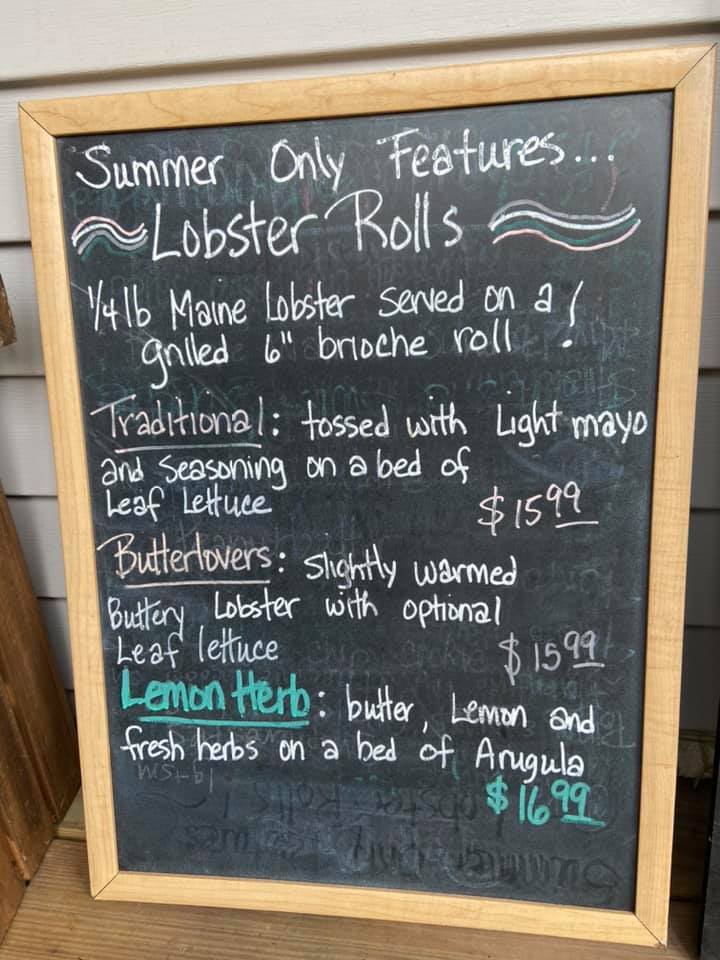 Summer Only Features...
Lobster Rolls
1/4 lb Maine Lobster served on a
grilled 6" brioche roll !
Traditional: tossed with Light mayo
and seasoning on a bed of
Leaf Lettuce
$15.99
Butterlovers: slightly warmed
Buttery Lobster with optional
Leaf lettuce
$15.99
Lemon Herb: butter, Lemon and
fresh herbs on a bed of Arugula
$16.99